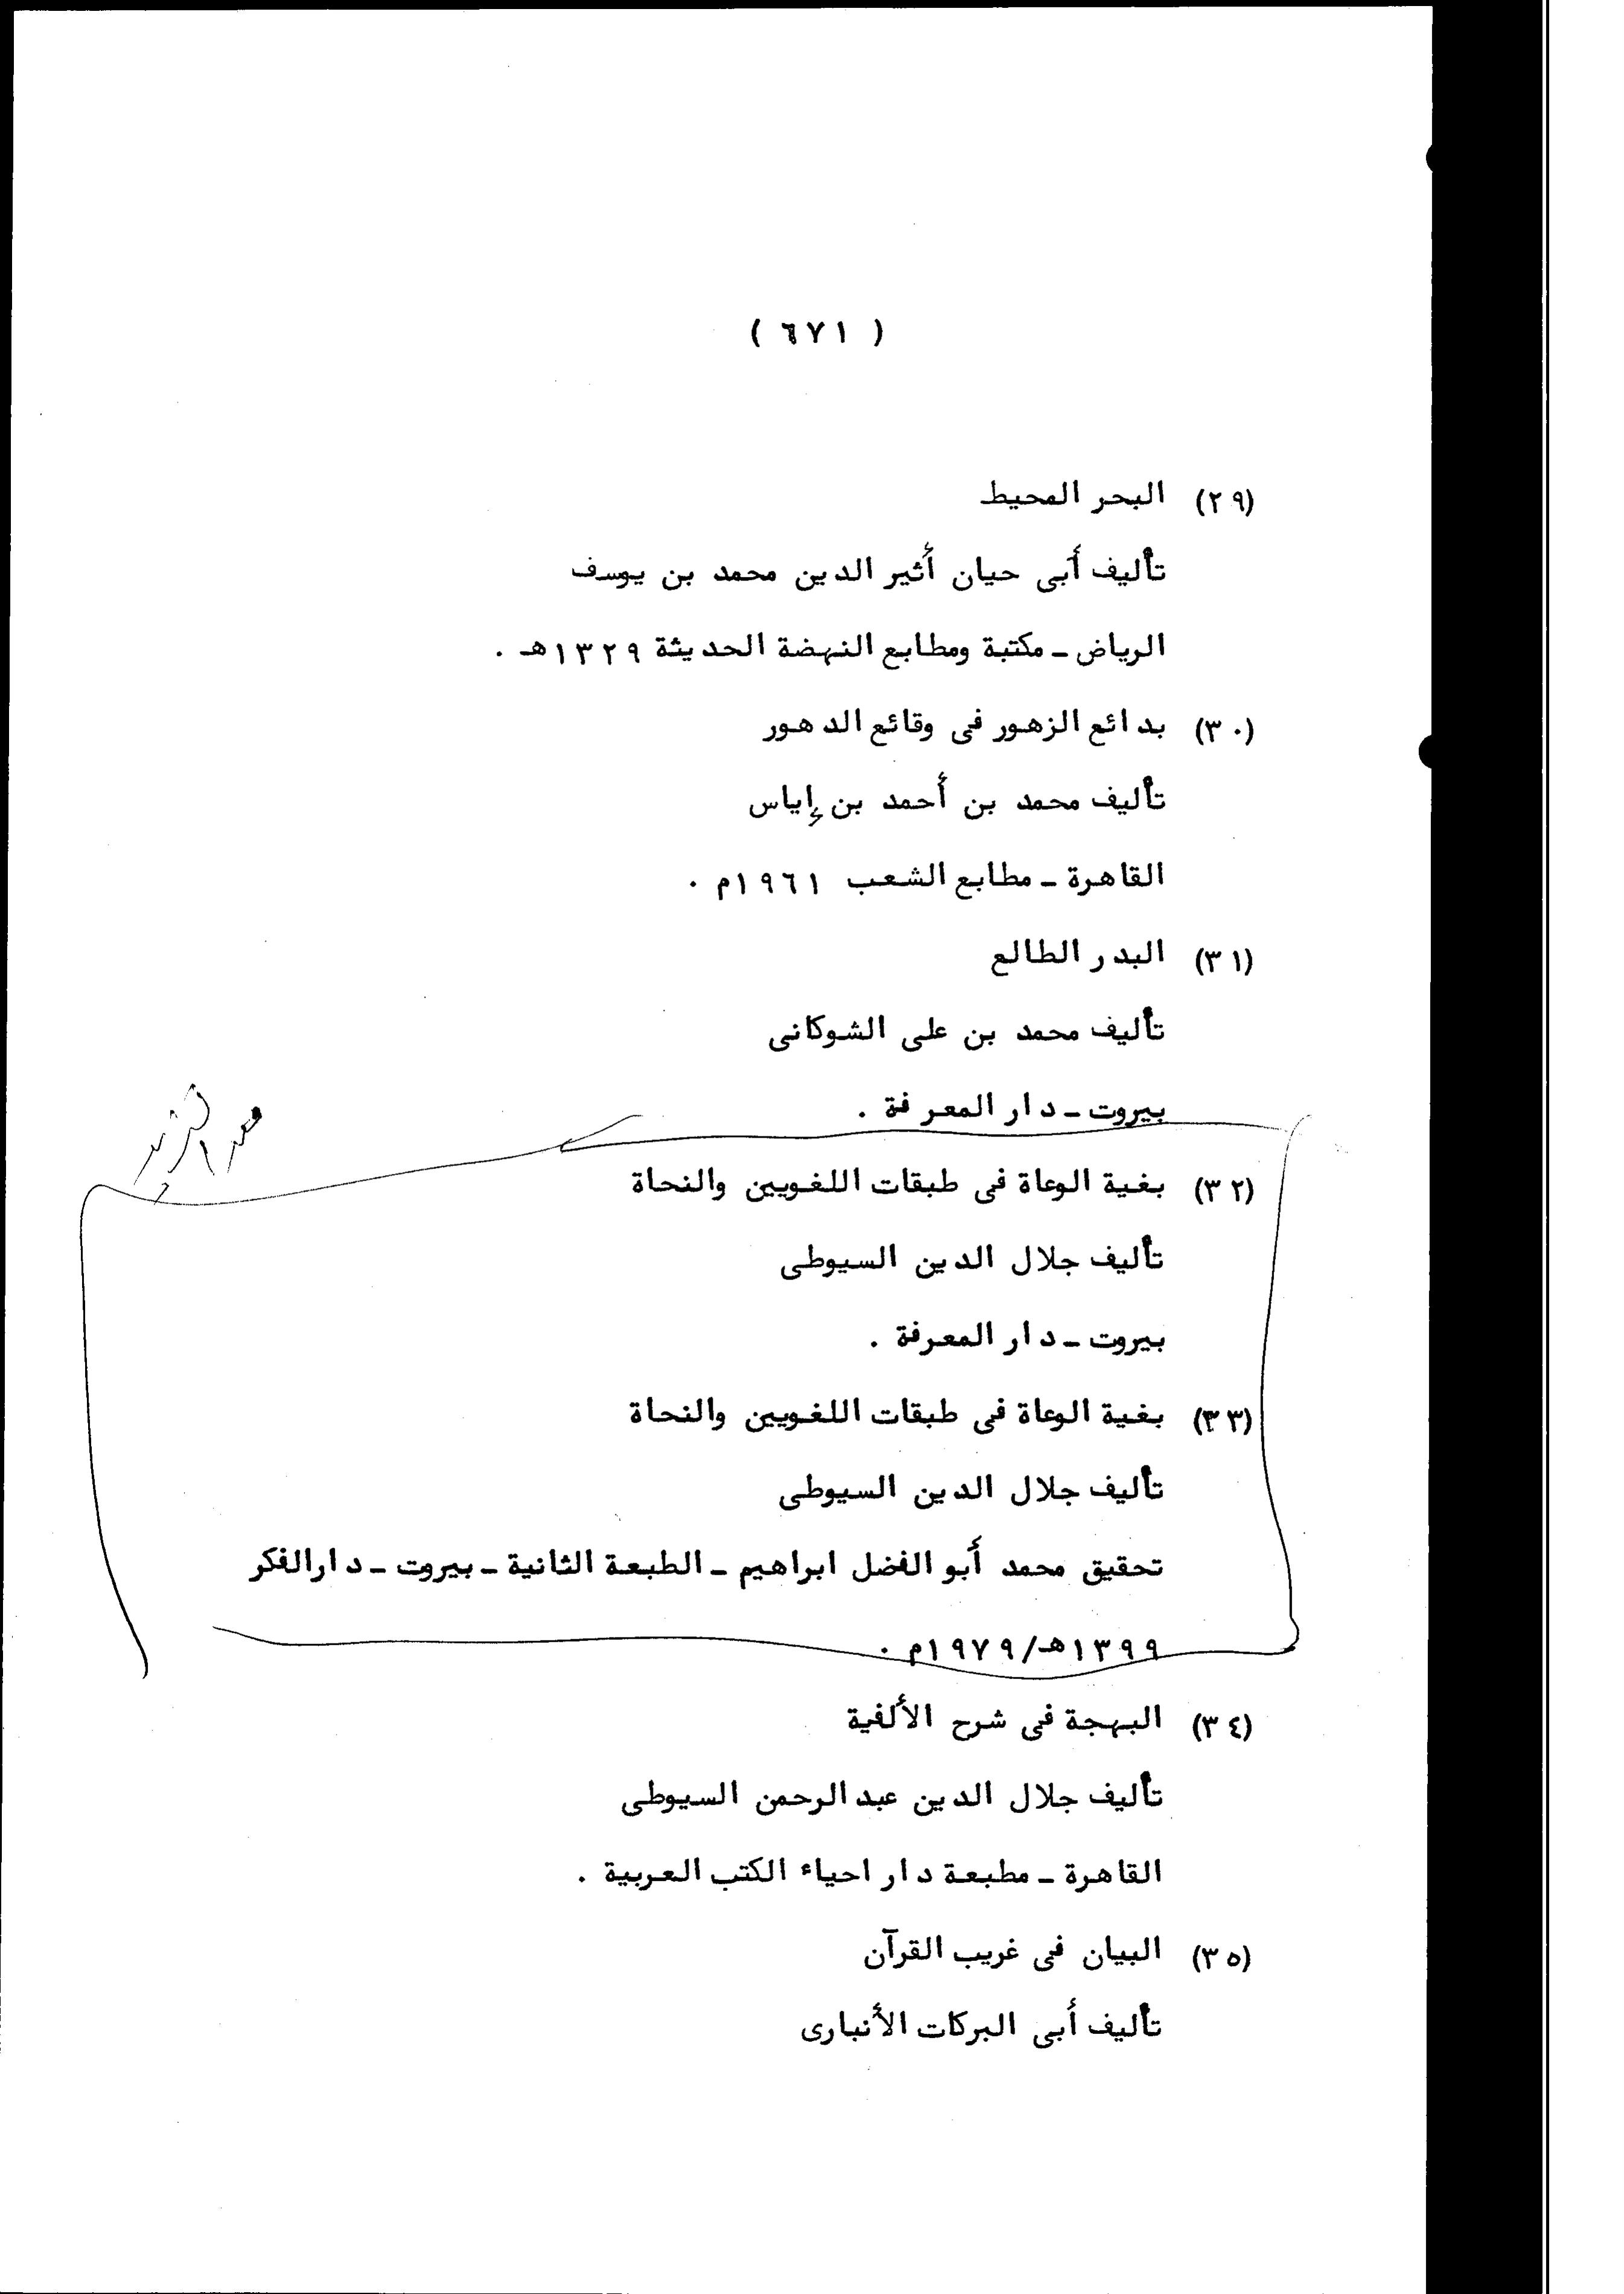 ( ٦٧١ )
(٢٩) البحر المحيط
تأليف أبى حيان أثير الدين محمد بن يوسف
الرياض ـ مكتبة ومطابع النهضة الحديثة ١٣٢٩هـ .
(٣٠) بدائع الزهور فى وقائع الدهور
تأليف محمد بن أحمد بن إياس
القاهرة ـ مطابع الشعب ١٩٦١م .
(٣١) البدر الطالع
تأليف محمد بن على الشوكانى
بيروت ـ دار المعرفة .
(٣٢) بغية الوعاة فى طبقات اللغويين والنحاة
تأليف جلال الدين السيوطى
بيروت ـ دار المعرفة .
(٣٣) بغية الوعاة فى طبقات اللغويين والنحاة
تأليف جلال الدين السيوطى
تحقيق محمد أبو الفضل ابراهيم ـ الطبعة الثانية ـ بيروت ـ دار الفكر
١٣٩٩هـ/١٩٧٩م .
(٣٤) البهجة فى شرح الألفية
تأليف جلال الدين عبد الرحمن السيوطى
القاهرة ـ مطبعة دار احياء الكتب العربية .
(٣٥) البيان فى غريب القرآن
تأليف أبى البركات الأنبارى